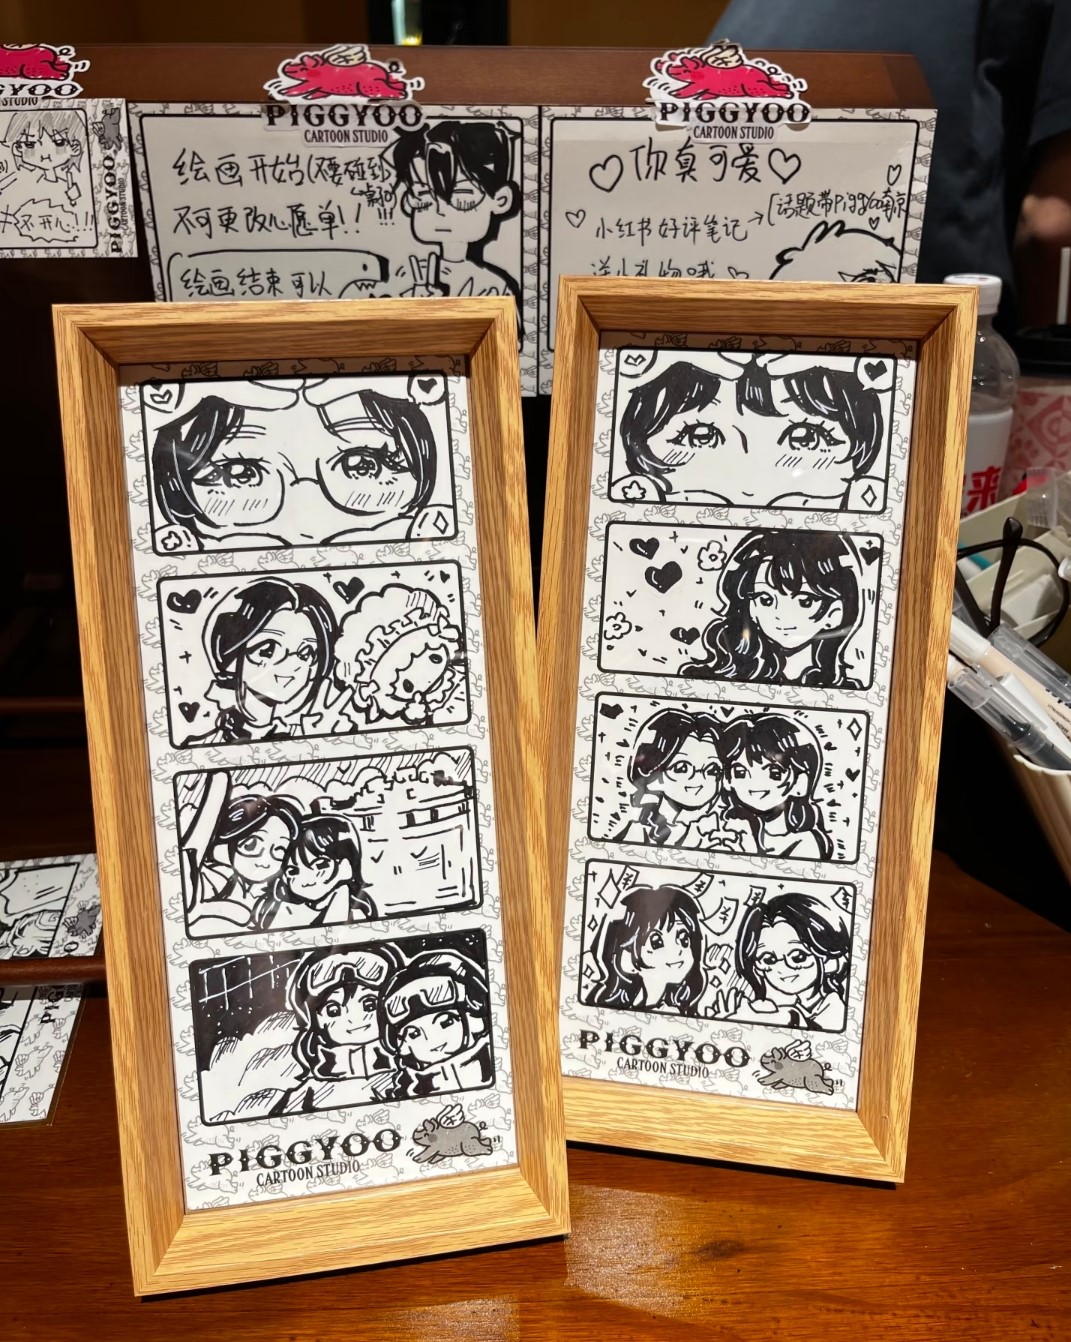 GYOO
STUDIO
不开心!!!
PIGGYOO
CARTOON STUDIO
PIGGYOO
CARTOON STUDIO
绘画开始(不要碰到桌子)
不可更改心愿单!!
绘画结束可以
PIGGYOO
CARTOON STUDIO
你真可爱
小红书好评笔记→[话题带Piggyoo南京
送小礼物哦
来
PIGGYOO
CARTOON STUDIO
PIGGYOO
CARTOON STUDIO